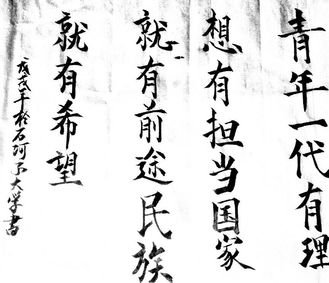 青年一代有理
想有担当国家
就有前途民族
就有希望
戊戌年於石河子大学書